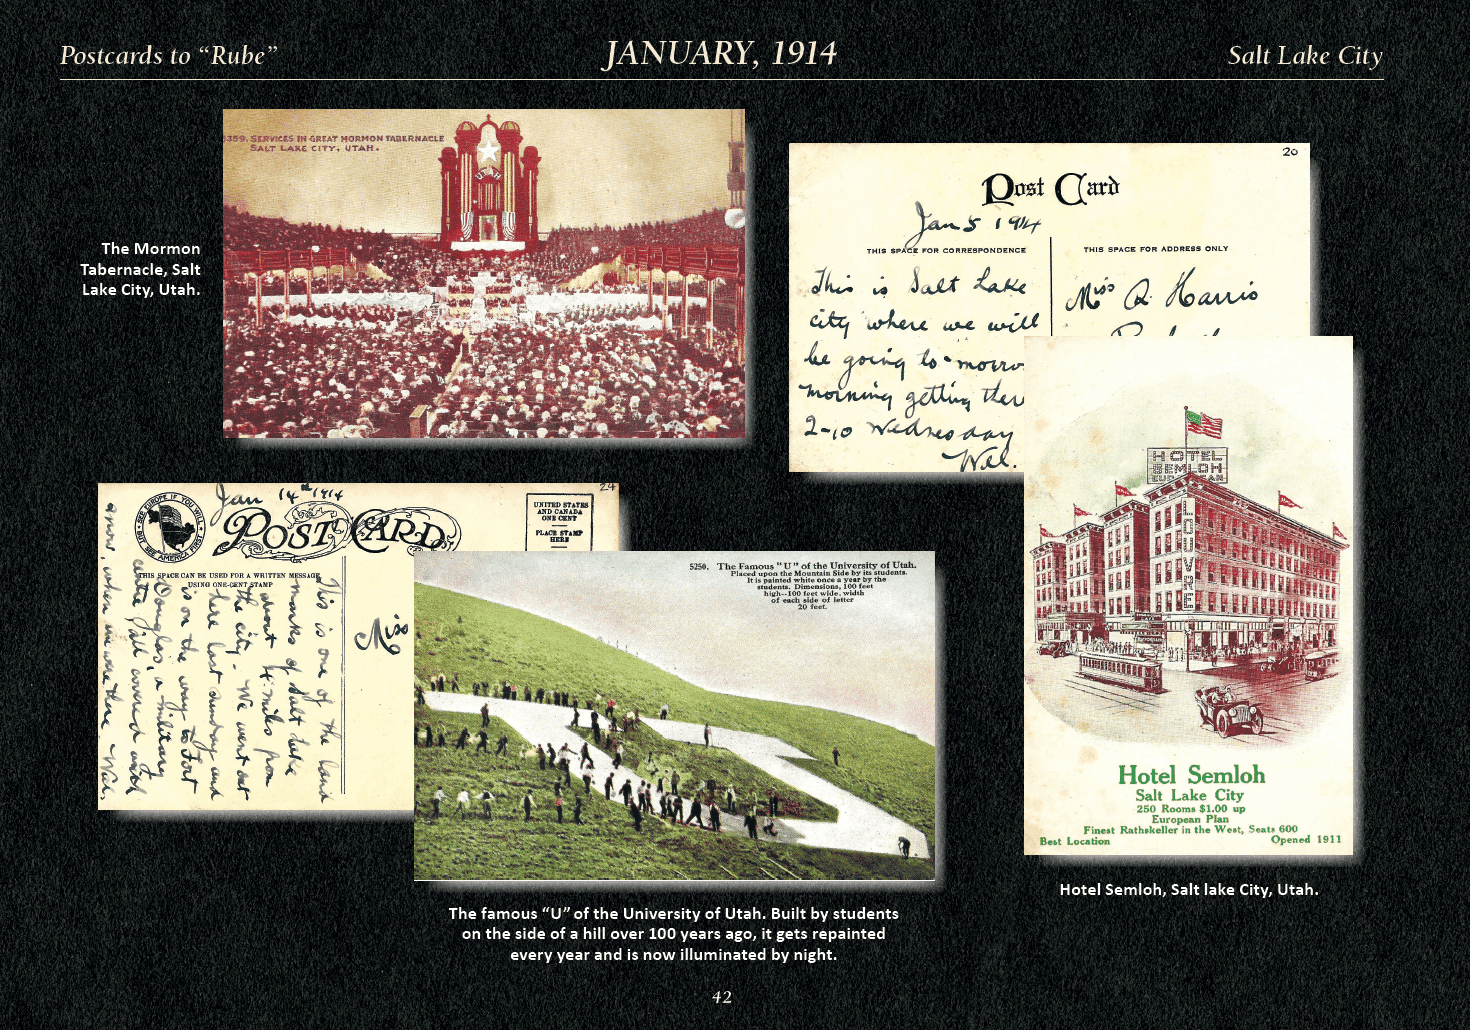 Postcards to “Rube”
JANUARY, 1914
Salt Lake City
359. SERVICES IN GREAT MORMON TABERNACLE
SALT LAKE CITY, UTAH.
UTAH
The Mormon
Tabernacle, Salt
Lake City, Utah.
20
Post Card
Jan 5 1914
THIS SPACE FOR CORRESPONDENCE
THIS SPACE FOR ADDRESS ONLY
This is Salt Lake
city where we will
be going to-morro
morning getting ther
2-10 Wednesday
Wil.
Miss R Harris
HOTEL
SEMLOH
EUROPEAN
LOUVRE
Hotel Semloh
Salt Lake City
250 Rooms $1.00 up
European Plan
Finest Rathskeller in the West, Seats 600
Best Location
Opened 1911
Hotel Semloh, Salt lake City, Utah.
24
Jan 14th 1914
SEE EUROPE IF YOU WILL
BUT SEE AMERICA FIRST
POST CARD
UNITED STATES
AND CANADA
ONE CENT
PLACE STAMP
HERE
THIS SPACE CAN BE USED FOR A WRITTEN MESSAGE
USING ONE-CENT STAMP
This is one of the land
marks of Salt Lake
about 4 miles from
the city. We went out
here last Sunday and
is on the way to Fort
Douglas, a military
centre, all covered with
snow, when we were there Will.
Miss
5250. The Famous "U" of the University of Utah.
Placed upon the Mountain Side by its students.
It is painted white once a year by the
students. Dimensions, 100 feet
high--100 feet wide, width
of each side of letter
20 feet.
The famous “U” of the University of Utah. Built by students
on the side of a hill over 100 years ago, it gets repainted
every year and is now illuminated by night.
42